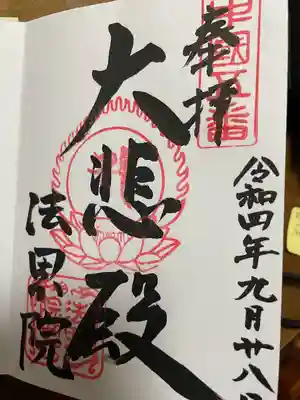 奉拝
中国五番
令和四年九月廿八日
大悲殿
法界院